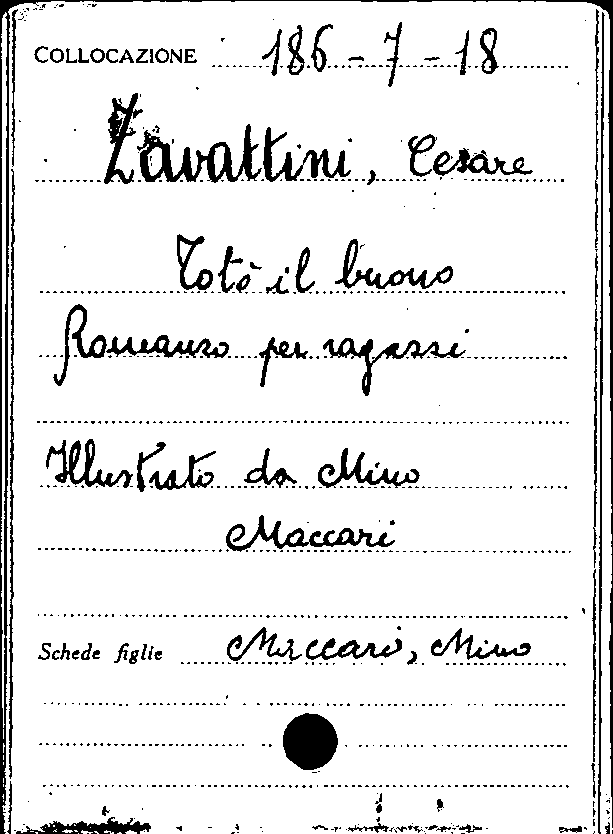 COLLOCAZIONE 186-7-18
Zavattini, Cesare
Totò il buono
Romanzo per ragazzi
Illustrato da Mino
Maccari
Schede figlie Maccari, Mino